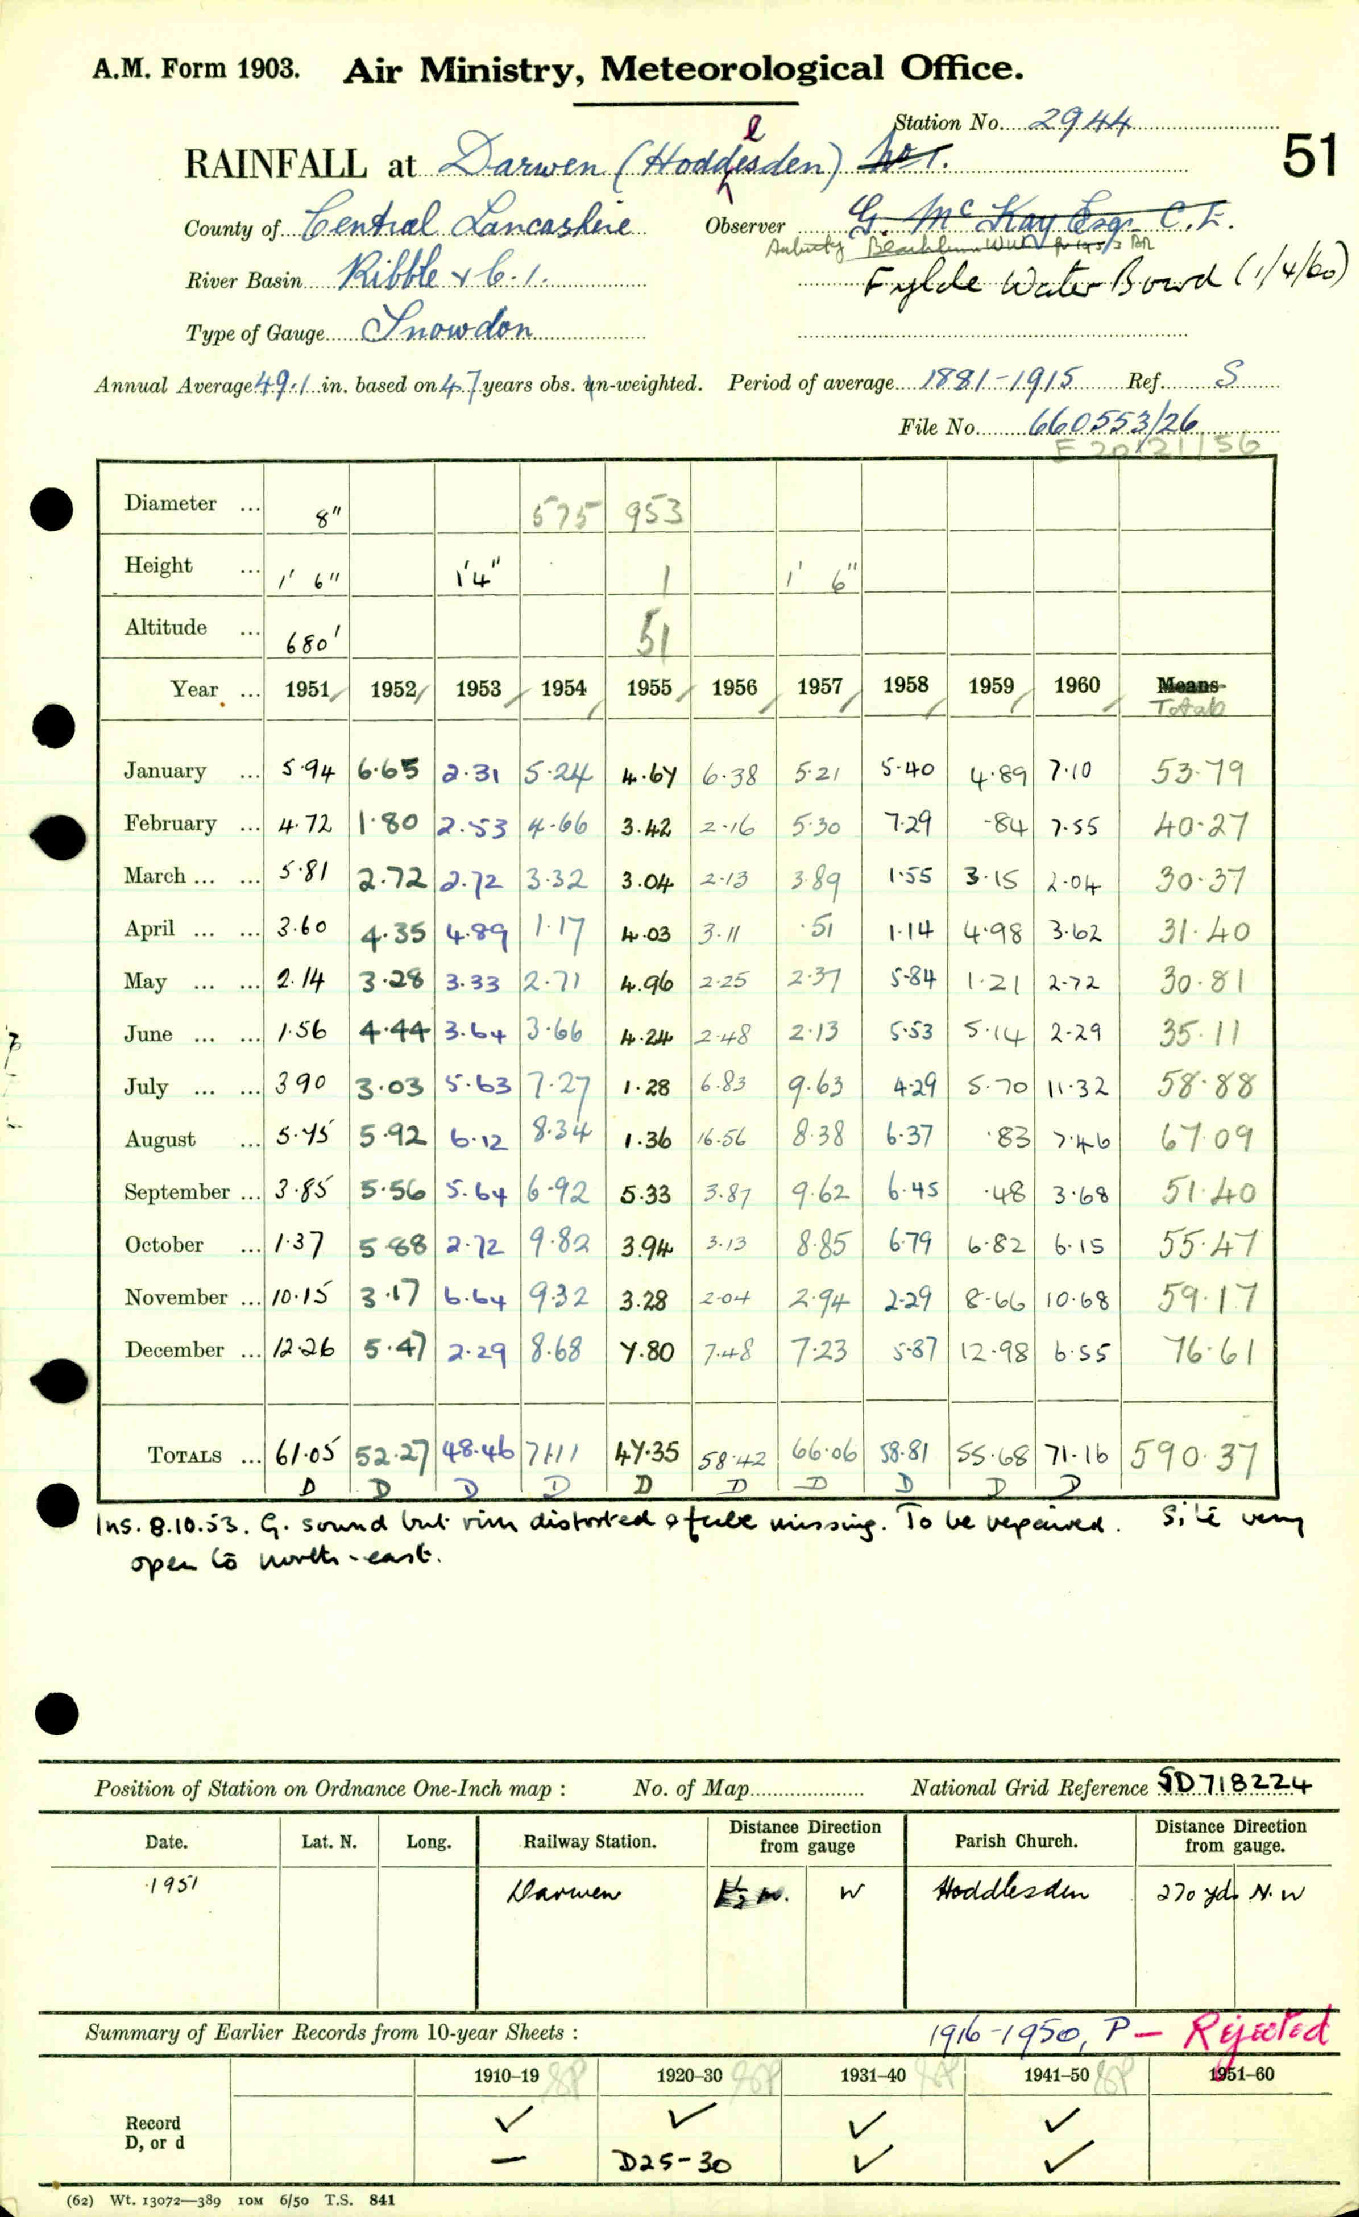 A.M. Form 1903. Air Ministry, Meteorological Office.
Station No. 2944
51
RAINFALL at Darwen (Hoddlesden) No 1.
County of Central Lancashire Observer G. McKay Esq. C.E.
River Basin Ribble & C.1. Fylde Water Board (1/4/60)
Type of Gauge Snowdon
Annual Average 49.1 in. based on 47 years obs. un-weighted. Period of average 1881-1915 Ref. S
File No. 660553/26
E 20/21/56
Diameter ... 8" 575 953
Height ... 1' 6" 1'4" 1 1' 6"
Altitude ... 680' 51
Year ... 1951 1952 1953 1954 1955 1956 1957 1958 1959 1960 Means
Totals
January ... 5.94 6.65 2.31 5.24 4.67 6.38 5.21 5.40 4.89 7.10 53.79
February ... 4.72 1.80 2.53 4.66 3.42 2.16 5.30 7.29 .84 7.55 40.27
March ... ... 5.81 2.72 2.72 3.32 3.04 2.13 3.89 1.55 3.15 2.04 30.37
April ... ... 3.60 4.35 4.89 1.17 4.03 3.11 .51 1.14 4.98 3.62 31.40
May ... ... 2.14 3.28 3.33 2.71 4.96 2.25 2.37 5.84 1.21 2.72 30.81
June ... ... 1.56 4.44 3.64 3.66 4.24 2.48 2.13 5.53 5.14 2.29 35.11
July ... ... 3 90 3.03 5.63 7.27 1.28 6.83 9.63 4.29 5.70 11.32 58.88
August ... 5.75 5.92 6.12 8.34 1.36 16.56 8.38 6.37 .83 7.46 67.09
September ... 3.85 5.56 5.64 6.92 5.33 3.87 9.62 6.45 .48 3.68 51.40
October ... 1.37 5 88 2.72 9.82 3.94 3.13 8.85 6.79 6.82 6.15 55.47
November ... 10.15 3.17 6.64 9.32 3.28 2.04 2.94 2.29 8.66 10.68 59.17
December ... 12.26 5.47 2.29 8.68 7.80 7.48 7.23 5.87 12.98 6.55 76.61
TOTALS ... 61.05 52.27 48.46 71.11 47.35 58.42 66.06 58.81 55.68 71.16 590.37
D D D D D D D D D D
Ins. 8.10.53. G. sound but rim distorted & missing. To be repaired. Site very
open to north-east.
Position of Station on Ordnance One-Inch map : No. of Map National Grid Reference SD718224
Date. Lat. N. Long. Railway Station. Distance from Direction gauge Parish Church. Distance from Direction gauge.
1951 Darwen W Hoddlesden 270 yds N.W
Summary of Earlier Records from 10-year Sheets : 1916-1950, P — Rejected
1910–19 1920–30 1931–40 1941–50 1951–60
Record ✓ ✓ ✓ ✓
D, or d — D25-30 ✓ ✓
(62) Wt. 13072—389 10M 6/50 T.S. 841